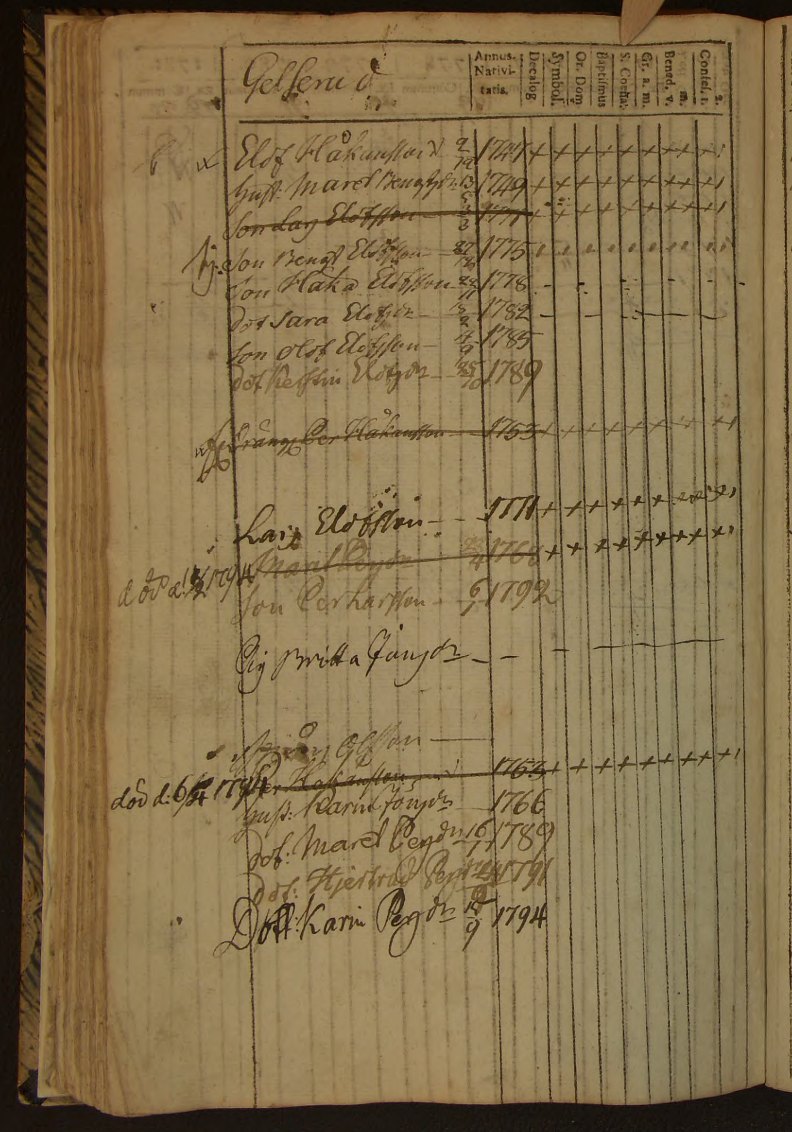 Gelserud
Annus. Nativi- tatis.
Decalog
Symbol.
Or. Dom
Baptismus
S. Coena.
Gr. a. m.
Bened. v. m.
Confes. 1. 2.
Elof Håkansson 1747
Hust: Maret Bengtsdr 13 1749
Son Lars Elofsson
Son Bengt Elofsson 1775
Son Håka Elofsson 1778
dot Sara Elofsdr 1782
Son Olof Elofsson 1785
dot Kerstin Elofsdr 1789
Dräng Per Håkansson 1753
Lars Elofsson 1771
död d. 1794 Maret 176
Son Per Larsson 1792
Pig Britta Jonsdr
Olsson
död d: 6/4 1794 Per Håkansson 1753
Hust: Karin Jonsdr 1766
Dot: Maret Persdr 16 1789
Dot: Persdr 1791
Dott: Karin Persdr 9 1794